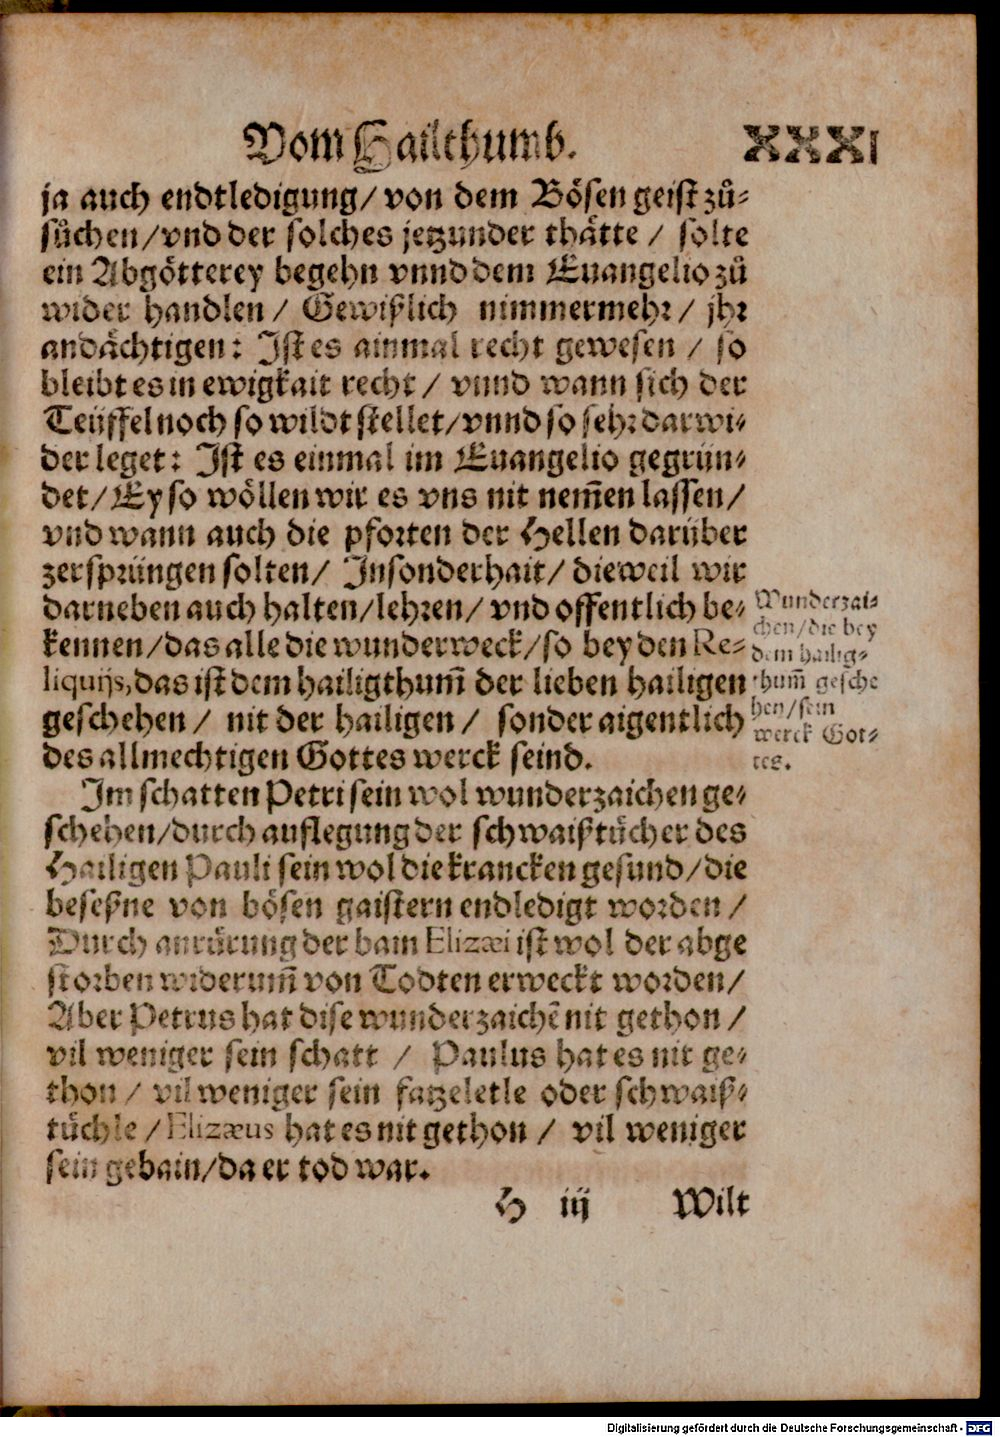 Vom Hailthumb. XXXI
ja auch endtledigung/ von dem Bösen geist zů-
sůchen/vnd der solches jetzunder thätte / solte
ein Abgötterey begehn vnnd dem Euangelio zů
wider handlen/ Gewißlich nimmermehr/ jhr
andächtigen: Ist es ainmal recht gewesen / so
bleibt es in ewigkait recht/ vnnd wann sich der
Teüffel noch so wildt stellet/vnnd so sehr darwi-
der leget: Ist es einmal im Euangelio gegrün-
det/Ey so wöllen wir es vns nit nem̃en lassen/
vnd wann auch die pforten der Hellen darüber
zersprüngen solten/ Insonderhait/ dieweil wir
darneben auch halten/lehren/ vnd offentlich be-
kennen/das alle die wunderweck/so bey den Re-
liquijs,das ist dem hailigthum̃ der lieben hailigen
geschehen/ nit der hailigen/ sonder aigentlich
des allmechtigen Gottes werck seind.
Wunderzai-
chen/die bey
dem hailig-
thum̃ gesche
hen/sein
werck Got-
tes.
Im schatten Petri sein wol wunderzaichen ge-
schehen/durch auflegung der schwaißtücher des
Hailigen Pauli sein wol die krancken gesund/die
beseßne von bösen gaistern endledigt worden/
Durch anrürung der bain Elizæi ist wol der abge
storben widerum̃ von Todten erweckt worden/
Aber Petrus hat dise wunderzaichē nit gethon/
vil weniger sein schatt / Paulus hat es nit ge-
thon/ vil weniger sein fatzeletle oder schwaiß-
tüchle/Elizæus hat es nit gethon / vil weniger
sein gebain/da er tod war.
H iij Wilt
Digitalisierung gefördert durch die Deutsche Forschungsgemeinschaft - DFG